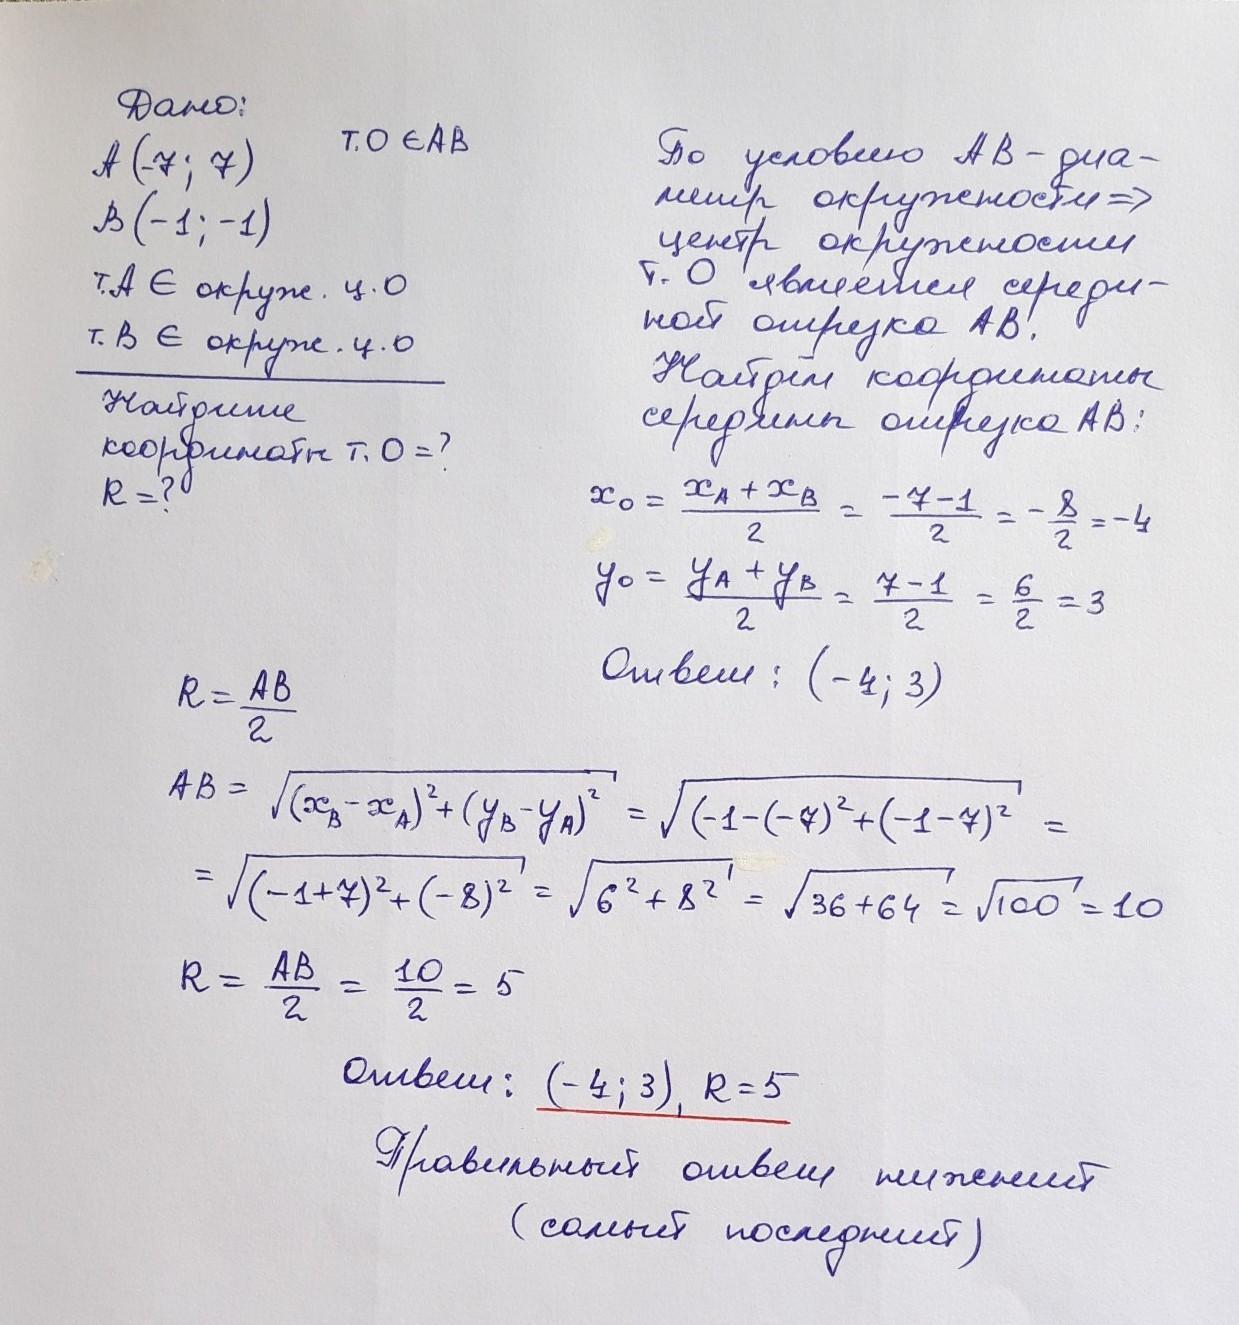 Дано:
A (-7; 7)
т.O ∈ AB
B (-1; -1)
т.A ∈ окруж. ц.O
т.B ∈ окруж. ц.O
Найдите
координаты т.O = ?
R = ?
По условию AB - диа-
метр окружности =>
центр окружности
т.O является середи-
ной отрезка AB.
Найдём координаты
середины отрезка AB:
x₀ = (x_A + x_B)/2 = (-7-1)/2 = -8/2 = -4
y₀ = (y_A + y_B)/2 = (7-1)/2 = 6/2 = 3
Ответ: (-4; 3)
R = AB/2
AB = √((x_B - x_A)² + (y_B - y_A)²) = √((-1-(-7)² + (-1-7)²) =
= √((-1+7)² + (-8)²) = √(6² + 8²) = √(36+64) = √100 = 10
R = AB/2 = 10/2 = 5
Ответ: (-4; 3), R = 5
Правильный ответ нижний
(самый последний)